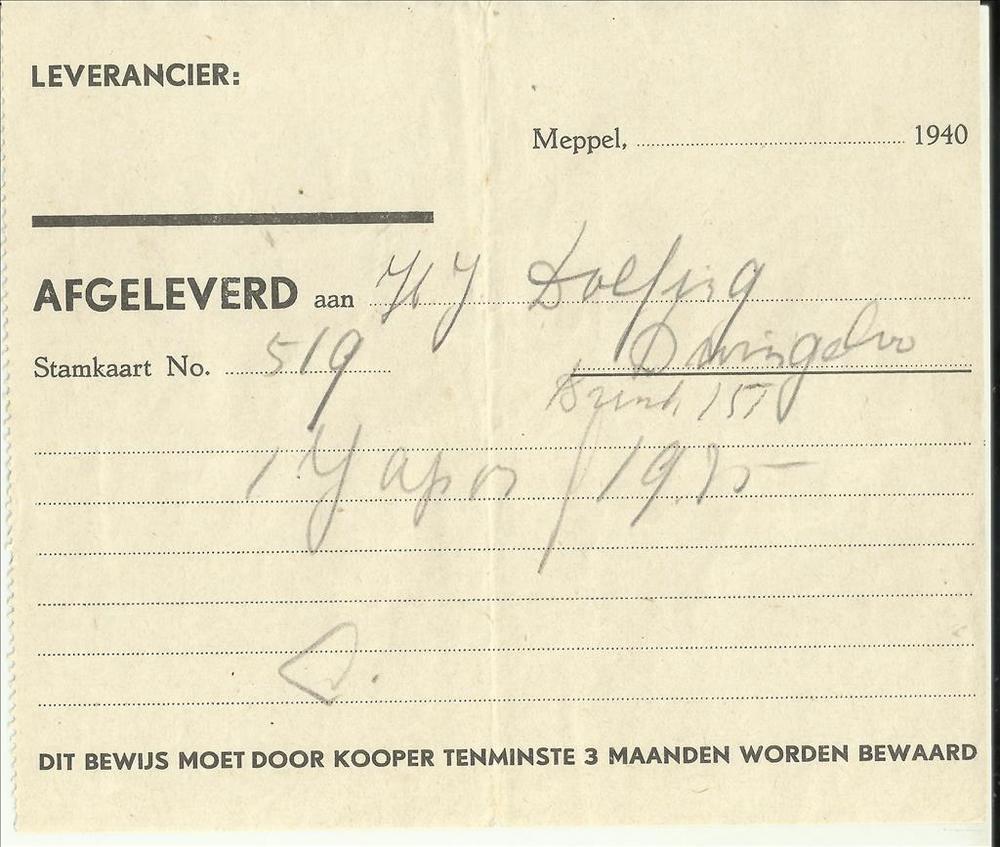 LEVERANCIER:
Meppel, 1940
AFGELEVERD aan HJ Dolfing
Stamkaart No. 519 Dwingeloo
Brink 157
1 japon / 19.75 -
DIT BEWIJS MOET DOOR KOOPER TENMINSTE 3 MAANDEN WORDEN BEWAARD